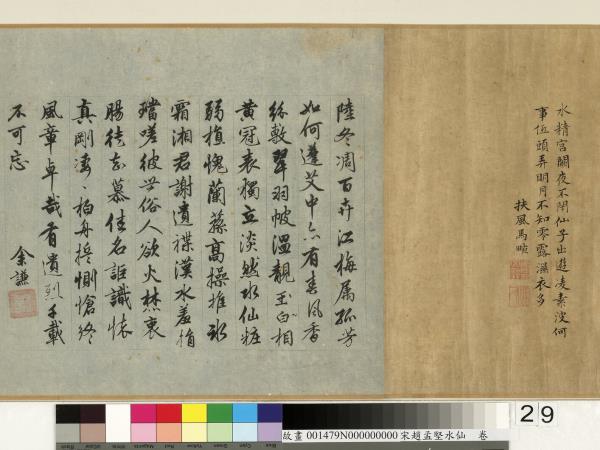 水精宮闕夜不閉仙子出遊凌素波何
事伍頭弄明月不知零露濕衣多
扶風馬㬇
陸冬凋百卉江梅厲孤芳
如何蓬艾中亦有春風香
紛敷翠羽帔溫靚玉白相
黃冠表獨立淡然水仙粧
弱植愧蘭蓀高操摧冰
霜湘君謝遺褋漢水羞捐
璫嗟彼世俗人欲火焚衷
腸徒知慕佳名詎識懷
真剛凄〻柏舟誓惻愴終
風章卓哉有遺烈千載
不可忘
余謙
29
故畫 001479N000000000 宋趙孟堅水仙 卷